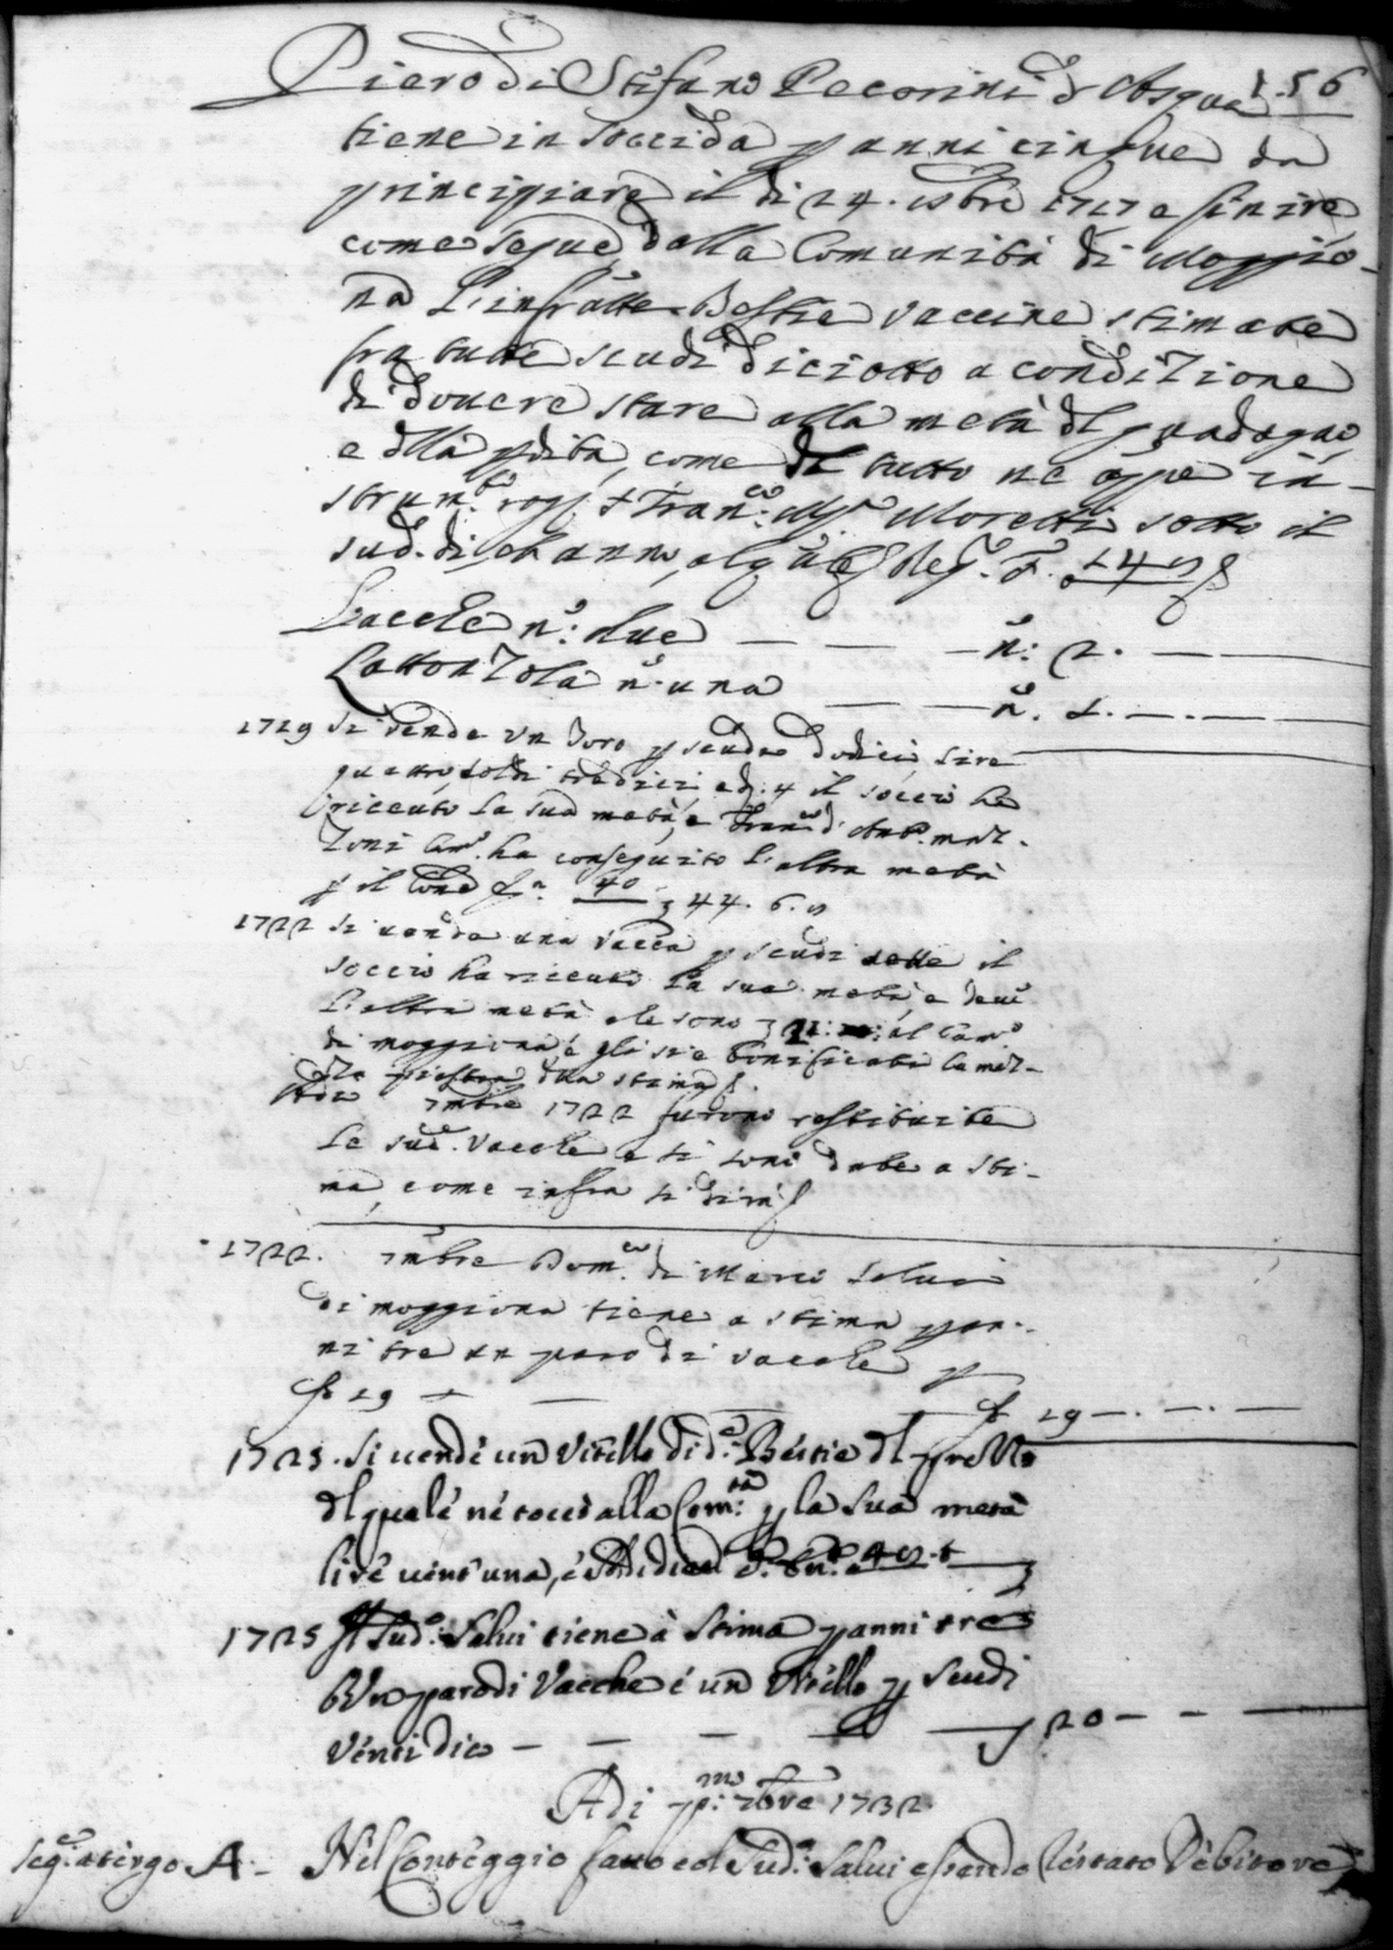 Piero di Stefano Pecorini d' Asqua 56
tiene in soccida p anni cinque da
principiare il di 24. 8bre 1717 e finire
come segue dalla Comunità di Moggio-
na l'infratte Bestie vaccine stimate
fra tutte scudi diciotto a condizione
di douere stare alla metà dl guadagno,
e dlla pdita, come dl tutto ne appe in-
strumto. rog. Franco. Moretti sotto il
sud. di et anno, al q
Vacche n.o due — — — n.o 2. — —
Lattonzola n.o una — — n.o 1. — . — —
1719 si vende un Toro p scudi dodici, lire
quattro, soldi tredici, e d: 4 il soccio ha
riceuto la sua metà, e Franco di Anto. maz-
zoni Camo. ha conseguito l'altra metà
p il come 40 44. 6.
1722 si uende una Vacca p scudi sette il
soccio ha riceuto la sua metà, e deue
l'altra metà che sono al Camo.
di moggiona, e gli si è bonificati la met-
dlla stima
7mbre 1722 furono restituite
le sude. Vacche e si sono date a sti-
ma, come infra si dirà
1722. 7mbre Domco. di Marco Salui
di moggiona tiene a stima p an-
ni tre un paro di vacche p
19 — — 19 — . — . —
1723. Si uendé un Vitello di de. Béstie dl prezzo
dl quale né toccò alla Comtà. p la sua metà
liré uent'una, é
1725 Il Sudo. Salui tiene à Stima p anni tre
Un paro di Vacche é un Vitello p Scudi
Vénti dico — — — — 20 — — —
Adi pmo. 7bre 1732.
Sege. a tergo A. - Nél Contéggio fatto col Sudo. Salui essendo réstato Débitore